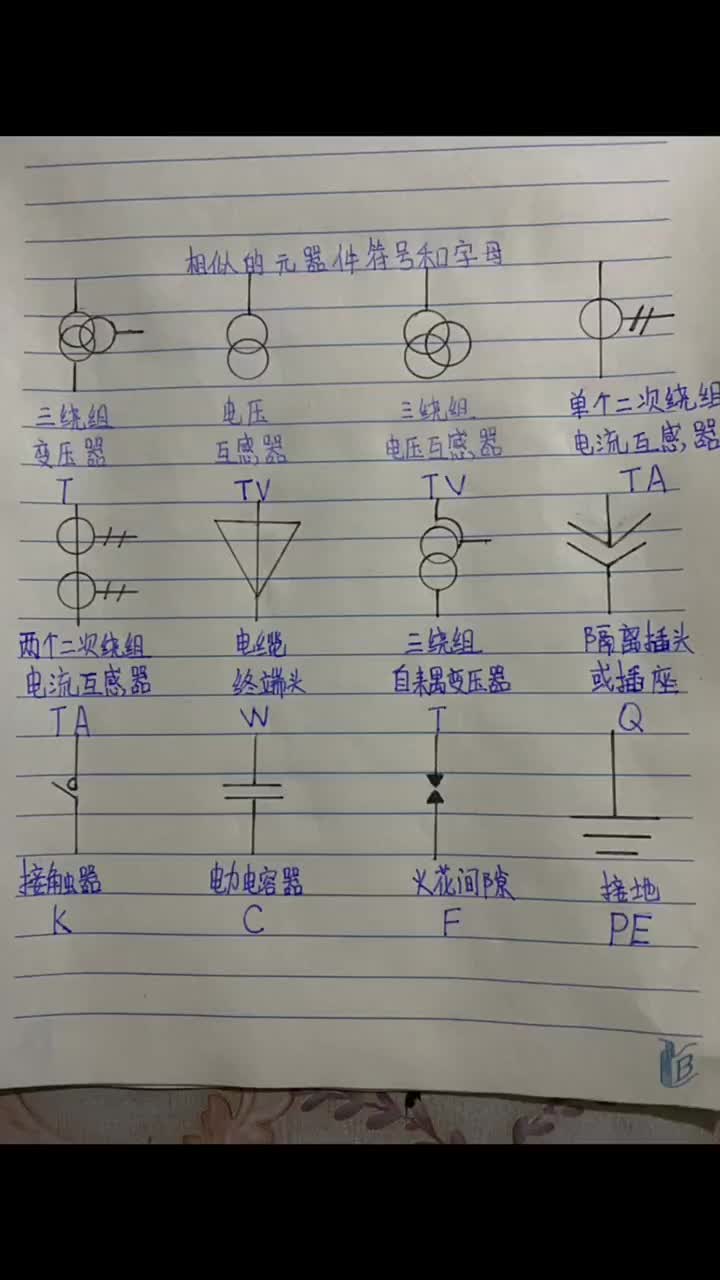 相似的元器件符号和字母
三绕组 电压 三绕组 单个二次绕组
变压器 互感器 电压互感器 电流互感器
T TV TV TA
两个二次绕组 电缆 三绕组 隔离插头
电流互感器 终端头 自耦变压器 或插座
TA W T Q
接触器 电力电容器 火花间隙 接地
K C F PE
B